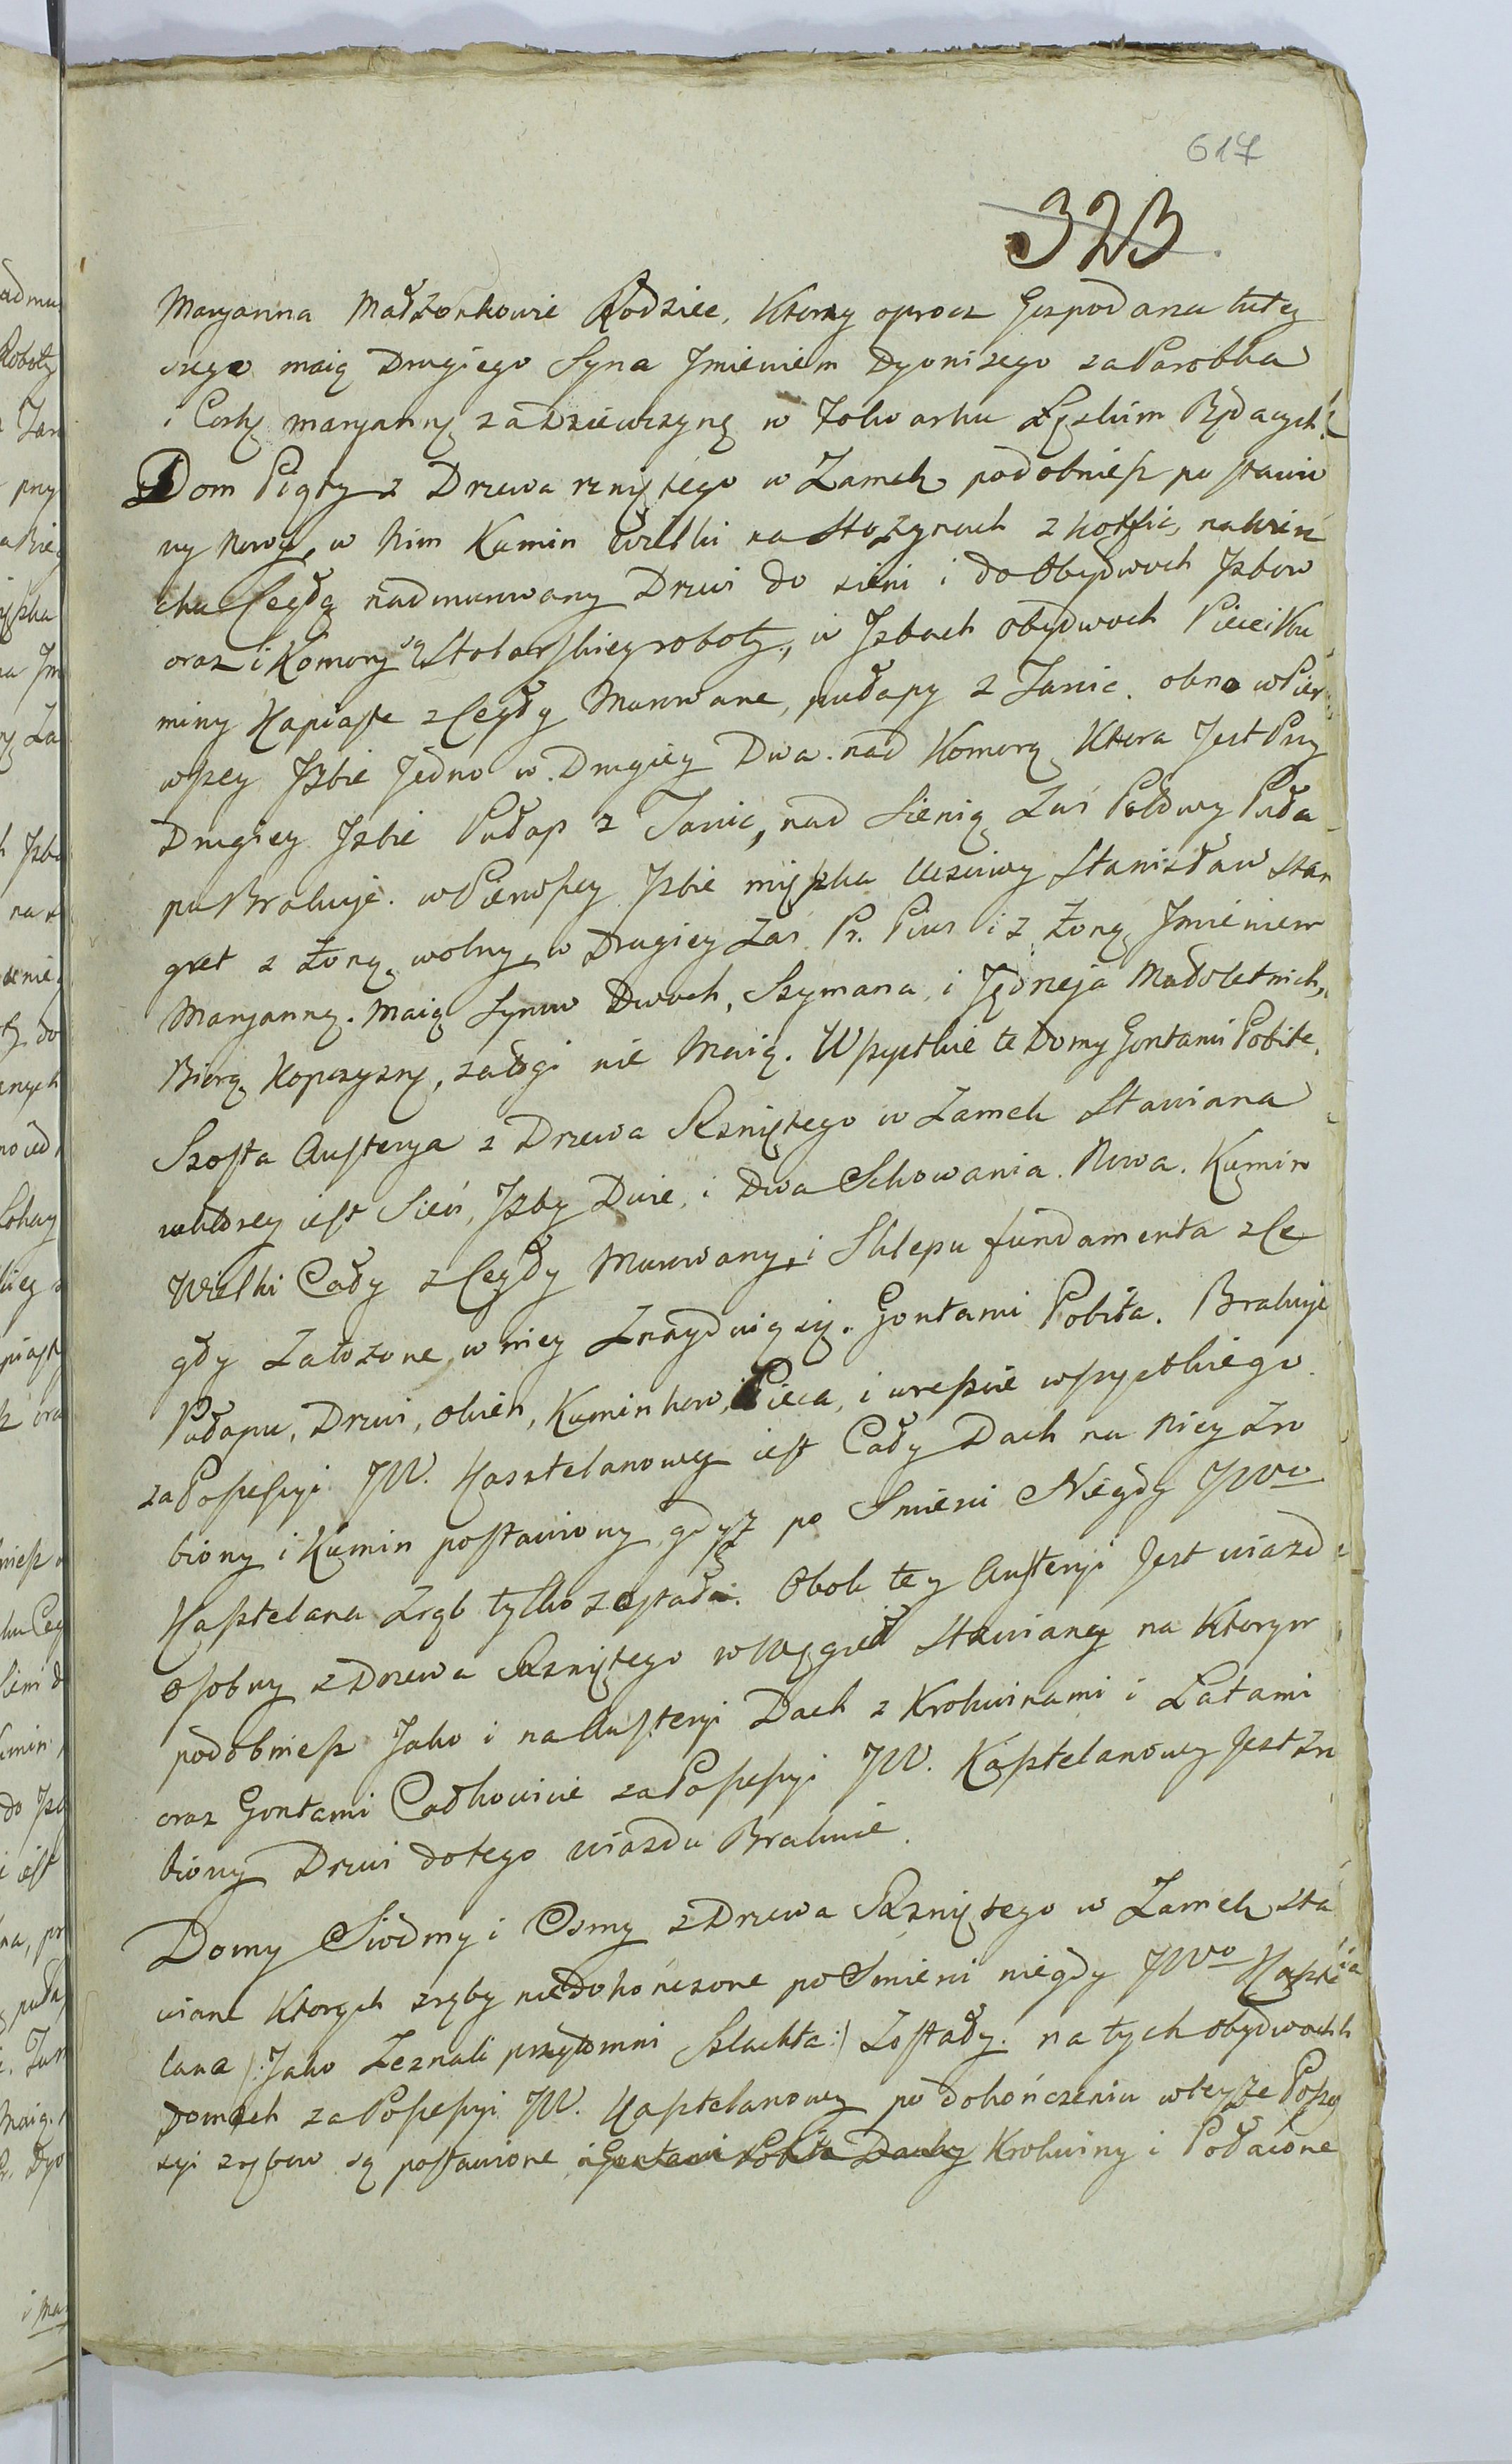 617
323
Maryanna Małżonkowie Rodzice, Ktorzy oprocz Gospodarza tutey
szego maią Drugiego Syna Jmieniem Dyonizego za Parobka
i Corkę Maryannę za Dziewczynę w Folwarku Łęzkim Będących.
Dom Piąty z Drzewa rzniętego w Zamek podobnież postawio
ny Nowy, w Nim Kamin Wielki na Stozynach z kotlic, na wierz
chu Cegłą nadmurowany Drzwi do sieni i do Obydwoch Jzbow
oraz i Komory są Stolarskiey roboty, w Jzbach obydwoch Piece i Ka
miny Kapiaste z Cegły Murowane, pułapy z Tarcic. okno w Pier
wszey Jzbie Jedno w Drugiey Dwa. nad Komorą Ktora Jest Przy
Drugiey Jzbie Pułap z Tarcic, nad Sienią Zaś Połowy Puła
pu Brakuje. w Pierwszey Jzbie mięszka Uczciwy Stanisław Stan
gret z Żoną wolny, w Drugiey Zaś Pr. Pius i z Żoną Jmieniem
Maryanną. Maią Synow Dwoch, Szymana, i Jędrzeja Małoletnich,
Biorą Kopczyznę, załogi nie Maią. Wszystkie te Domy Gontami Pobite.
Szosta Austerya z Drzewa Rzniętego w Zamek Stawiana
w ktorey iest Sień, Jzby Dwie, i Dwa Schowania. Nowa. Kamin
Wielki Cały z Cegły Murowany, i Sklepu fundamenta z Ce
gły Założone w niey Znayduią się. Gontami Pobita. Brakuje
Pułapu, Drzwi, okien, Kaminkow, i Pieca, i wreszcie wszystkiego
za Possessyi JW. Kasztelanowey iest Cały Dach na Niey Zro
biony i Kamin postawiony gdyż po Smierci Niegdy JWo
Kasztelana Zrąb tylko zostały. Obok tey Austeryi Jest wiazd
osobny z Drzewa Rzniętego w Węgieł Stawiany na Ktorym
podobniesz Jako i na Austeryi Dach z Krokwinami i Łatami
oraz Gontami Całkowicie za Possessyi JW. Kasztelanowey Jest Zro
biony Drzwi do tego wiazdu Brakuie.
Domy Siodmy i Osmy z Drzewa Rzniętego w Zamek sta
wiane Ktorych zręby niedokończone po Smierci niegdy JWo Kaszte
lana /: Jako Zeznali przytomni Szlachta :/ Zostały. na tych obydwoch
Domach za Possessyi JW. Kasztelanowey po dokończeniu w teyże Posse
syi zrębow są postawione i Gontami Pobite Dachy Krokwiny i Połacone